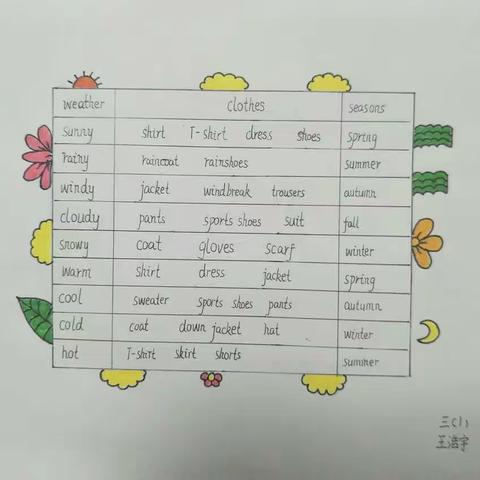 weather clothes seasons
sunny shirt T-shirt dress shoes spring
rainy raincoat rainshoes summer
windy jacket windbreak trousers autumn
cloudy pants sports shoes suit fall
snowy coat gloves scarf winter
warm shirt dress jacket spring
cool sweater sports shoes pants autumn
cold coat down jacket hat winter
hot T-shirt skirt shorts summer
三(1)
王浩宇